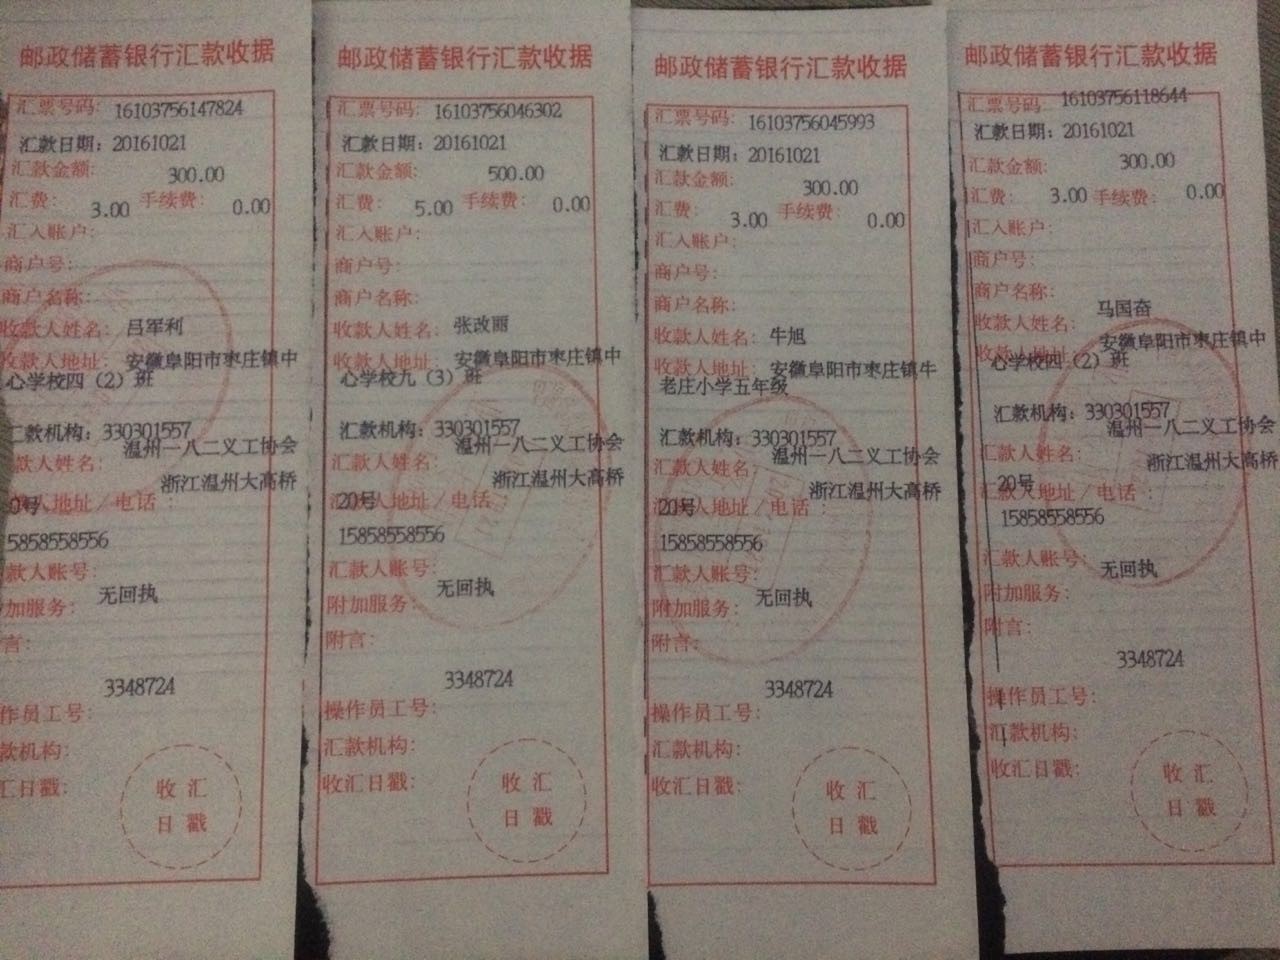 邮政储蓄银行汇款收据
汇票号码: 16103756147824
汇款日期: 20161021
汇款金额: 300.00
汇费: 3.00 手续费: 0.00
汇入账户:
商户号:
商户名称:
收款人姓名: 吕军利
收款人地址: 安徽阜阳市枣庄镇中
心学校四（2）班
汇款机构: 330301557
温州一八二义工协会
款人姓名:
浙江温州大高桥
0号 人地址/电话:
5858558556
款人账号:
加服务: 无回执
言:
3348724
作员工号:
款机构:
汇日戳:
收汇
日戳
邮政储蓄银行汇款收据
汇票号码: 16103756046302
汇款日期: 20161021
汇款金额: 500.00
汇费: 5.00 手续费: 0.00
汇入账户:
商户号:
商户名称:
收款人姓名: 张改丽
收款人地址: 安徽阜阳市枣庄镇中
心学校九（3）班
汇款机构: 330301557
温州一八二义工协会
汇款人姓名:
浙江温州大高桥
20号 人地址/电话:
15858558556
汇款人账号:
附加服务: 无回执
附言:
3348724
操作员工号:
汇款机构:
收汇日戳:
收汇
日戳
邮政储蓄银行汇款收据
汇票号码: 16103756045993
汇款日期: 20161021
汇款金额: 300.00
汇费: 3.00 手续费: 0.00
汇入账户:
商户号:
商户名称:
收款人姓名: 牛旭
收款人地址: 安徽阜阳市枣庄镇牛
老庄小学五年级
汇款机构: 330301557
温州一八二义工协会
汇款人姓名:
浙江温州大高桥
20号 人地址/电话:
15858558556
汇款人账号:
附加服务: 无回执
附言:
3348724
操作员工号:
汇款机构:
收汇日戳:
收汇
日戳
邮政储蓄银行汇款收据
汇票号码: 16103756118644
汇款日期: 20161021
汇款金额: 300.00
汇费: 3.00 手续费: 0.00
汇入账户:
商户号:
商户名称:
收款人姓名: 马国奋
收款人地址: 安徽阜阳市枣庄镇中
心学校四（2）班
汇款机构: 330301557
温州一八二义工协会
汇款人姓名:
浙江温州大高桥
20号
汇款人地址/电话:
15858558556
汇款人账号:
附加服务: 无回执
附言:
3348724
操作员工号:
汇款机构:
收汇日戳:
收汇
日戳